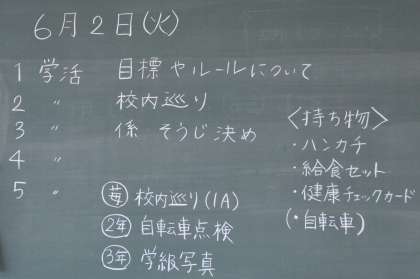 6月2日(火)
1 学活 目標やルールについて
2 〃 校内巡り
3 〃 係 そうじ決め
4 〃
5 〃
校内巡り(1A)
2年 自転車点検
3年 学級写真
<持ち物>
・ハンカチ
・給食セット
・健康チェックカード
(・自転車)